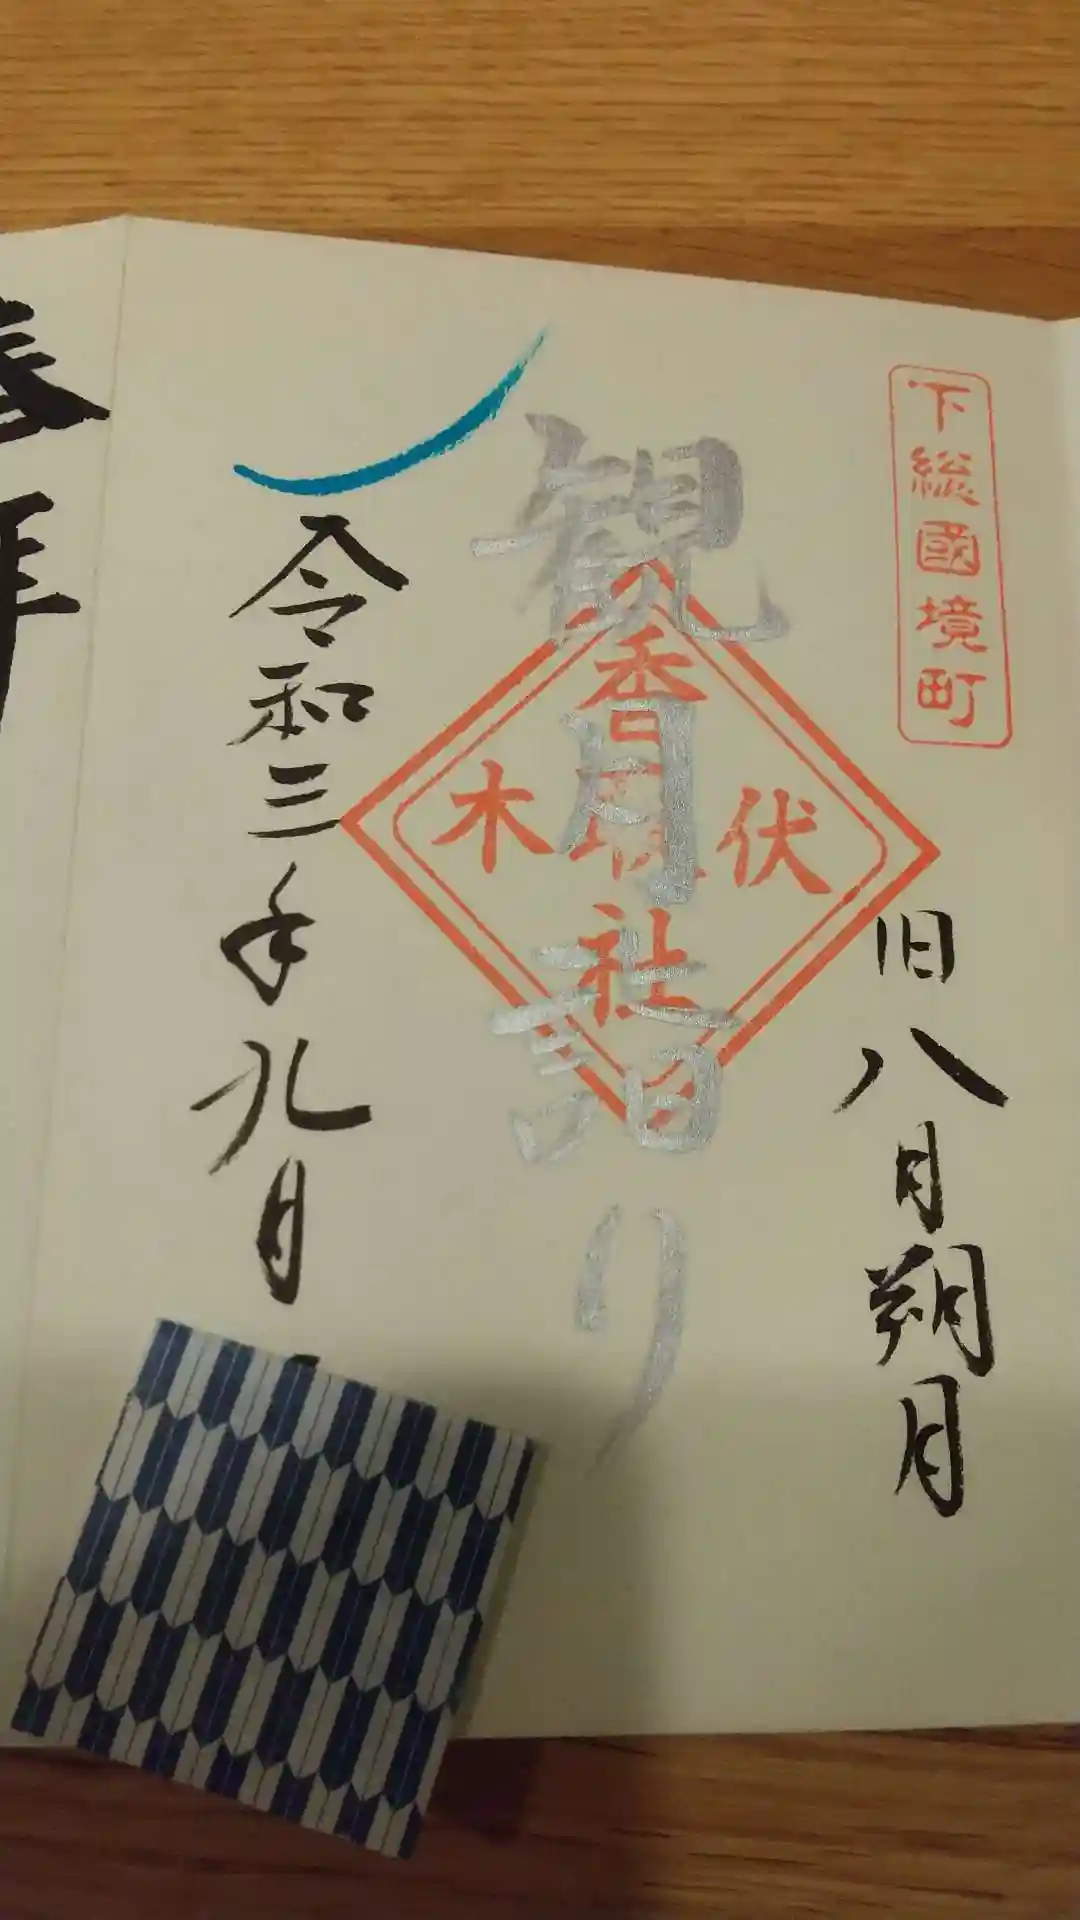 下総國境町
旧八月朔月
観月詣り
伏木
香取社
令和三年九月